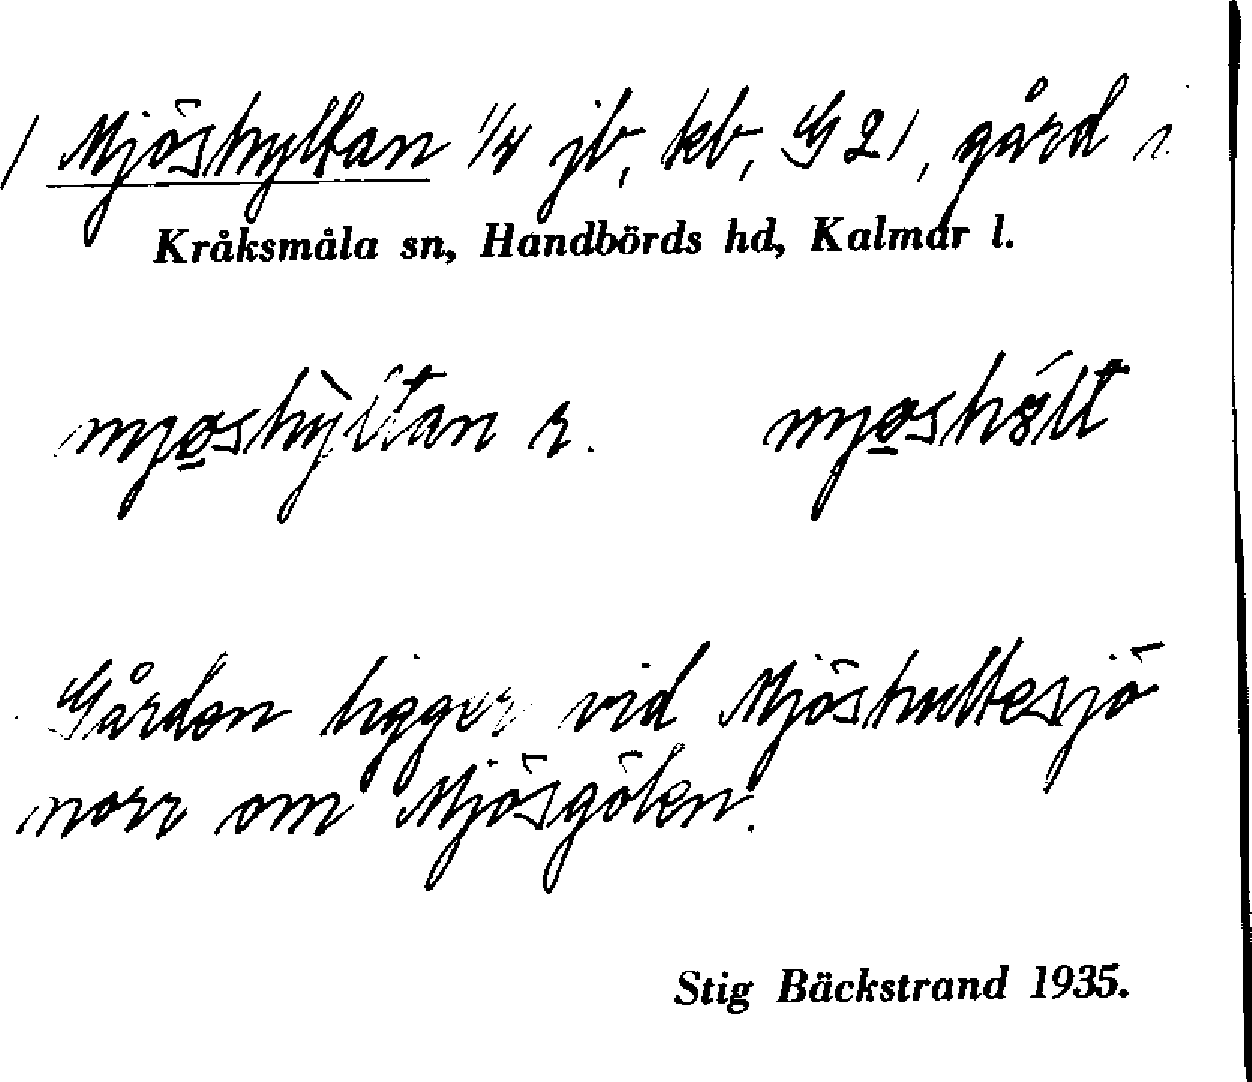 / Mjöshyltan 1/4 jb, kb, G 21, gård i
Kråksmåla sn, Handbörds hd, Kalmar l.
mjø̱shỳltan r. mjø̱shø̀lt
Gården ligger vid Mjöshultesjö
norr om Mjösgölen.
Stig Bäckstrand 1935.